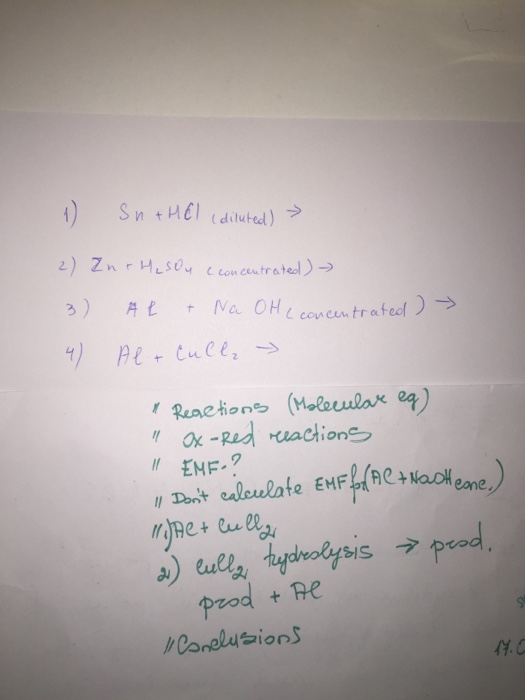 1) Sn + HCl (diluted) →
2) Zn + H₂SO₄ (concentrated) →
3) Al + NaOH (concentrated) →
4) Al + CuCl₂ →
" Reactions (Molecular eq)
" Ox-Red reactions
" EMF-?
" Don't calculate EMF for (Al + NaOH conc.)
" 1) Al + CuCl₂
2) CuCl₂ hydrolysis → prod.
prod + Al
" Conclusions